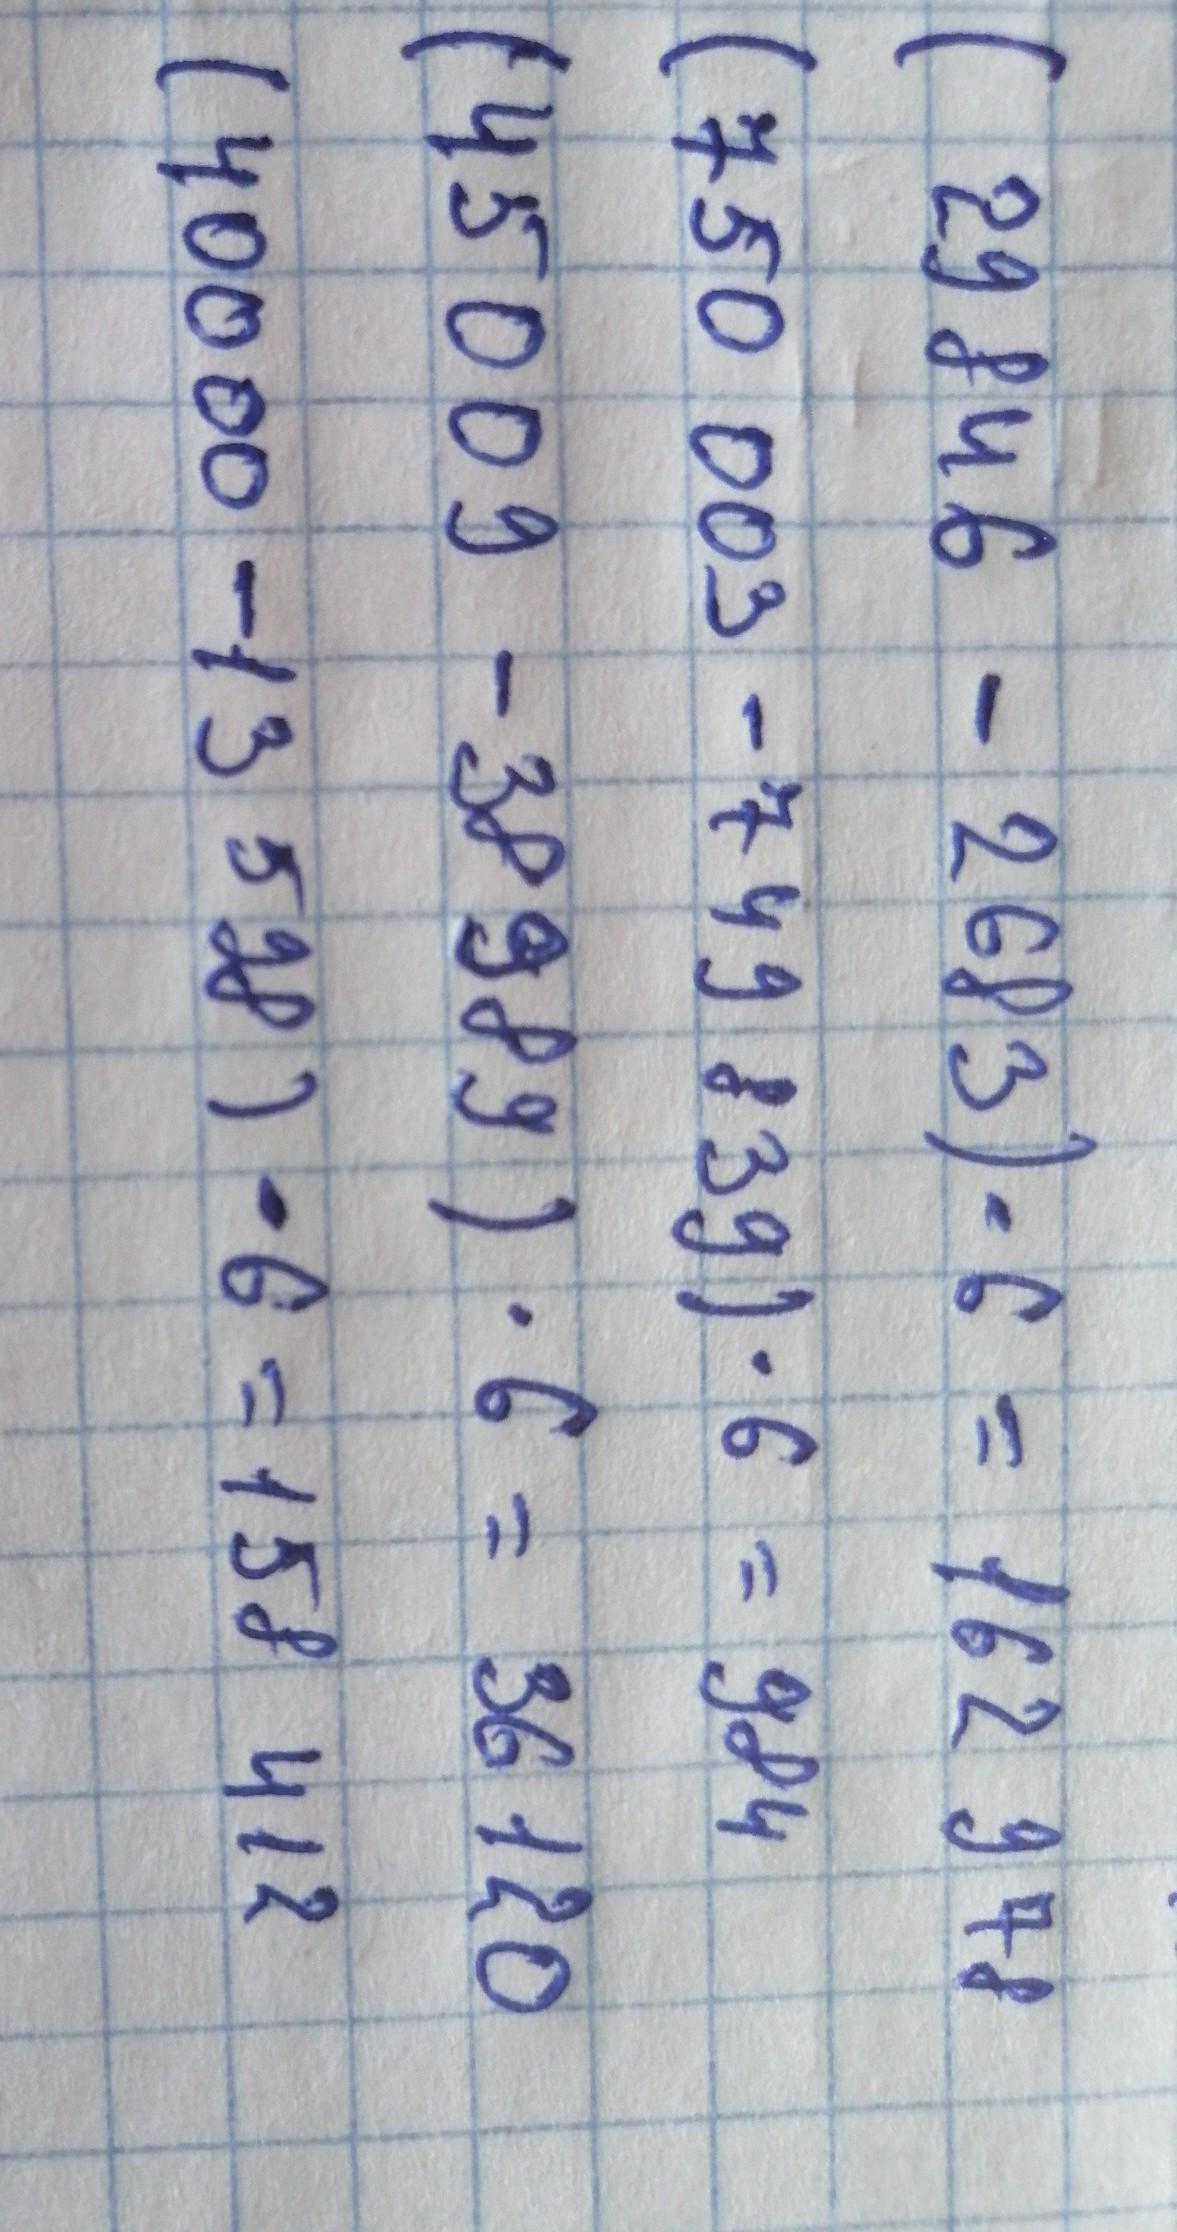 ( 29846 - 2683) · 6 = 162 978
(750 003 - 749 839) · 6 = 984
(45009 - 38989) · 6 = 36120
(40000 - 13 598) · 6 = 158 412